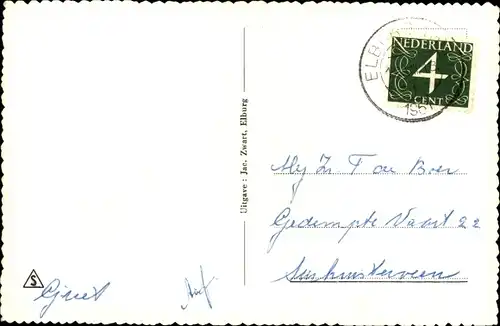 ELBU
NEDERLAND
4
CENT
1961
Uitgave : Jac. Zwart, Elburg
Mej Zr F de Boer
Gedempte Vaart 22
Surhuisterveen
S
Groet